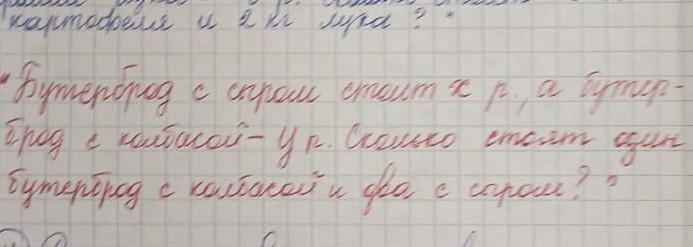 картофеля и 2 кг лука?"
"Бутерброд с сыром стоит x р., а бутер-
брод с колбасой – y р. Сколько стоят один
бутерброд с колбасой и два с сыром?"